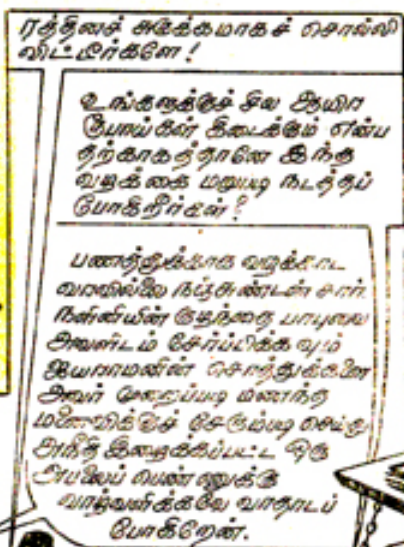 ரத்தினச் சுருக்கமாகச் சொல்லி
விட்டீர்களே!
உங்களுக்குச் சில ஆயிர
ரூபாய்கள் கிடைக்கும் என்ப
தற்காகத்தானே இந்த
வழக்கை மறுபடி நடத்தப்
போகிறீர்கள்?
பணத்துக்காக வழக்காட
வரவில்லை நஞ்சுண்டன் சார்.
நளினியின் குழந்தை பாபுவை
அவளிடம் சேர்ப்பிக்கவும்
ஜெயராமனின் சொத்துக்களை
அவர் முறைப்படி மணந்த
மனைவிக்குச் சேரும்படி செய்து
அநீதி இழைக்கப்பட்ட ஒரு
அபலைப் பெண்ணுக்கு
வாழ்வளிக்கவே வாதாடப்
போகிறேன்.